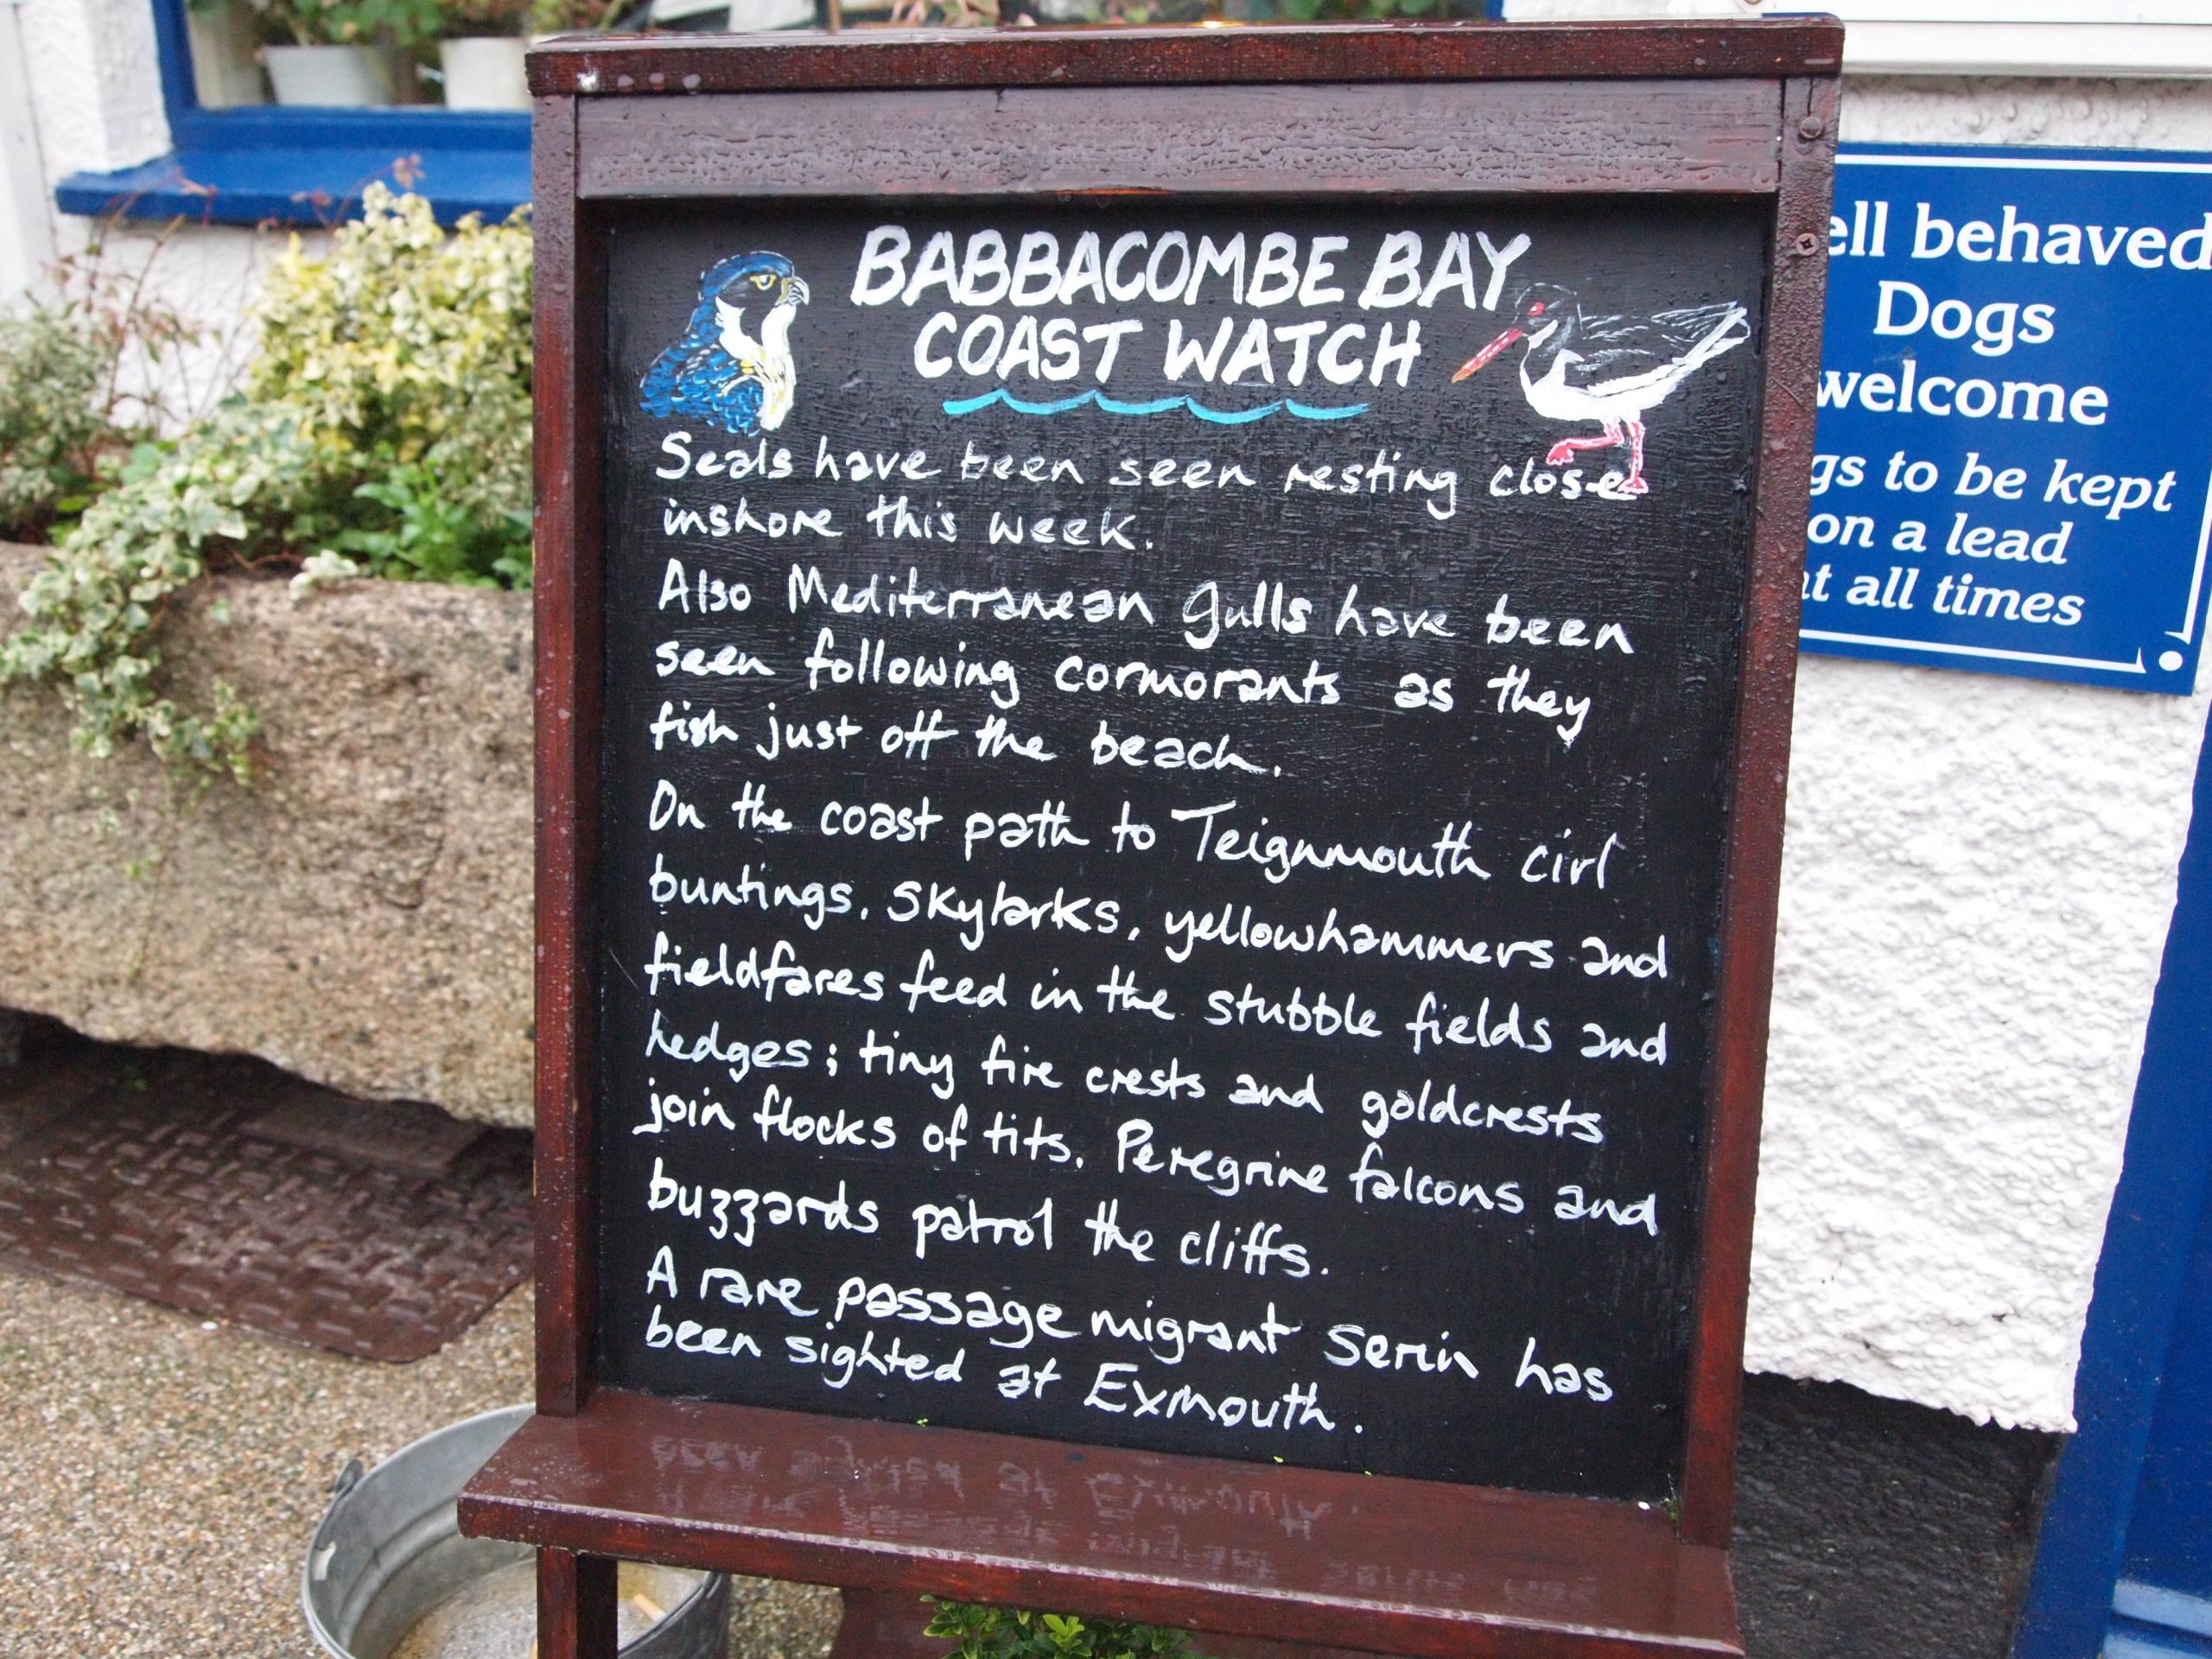 BABBACOMBE BAY
COAST WATCH
Seals have been seen resting close
inshore this week.
Also Mediterranean gulls have been
seen following cormorants as they
fish just off the beach.
On the coast path to Teignmouth cirl
buntings, skylarks, yellowhammers and
fieldfares feed in the stubble fields and
hedges; tiny fire crests and goldcrests
join flocks of tits. Peregrine falcons and
buzzards patrol the cliffs.
A rare passage migrant serin has
been sighted at Exmouth.
ell behaved
Dogs
welcome
gs to be kept
on a lead
at all times